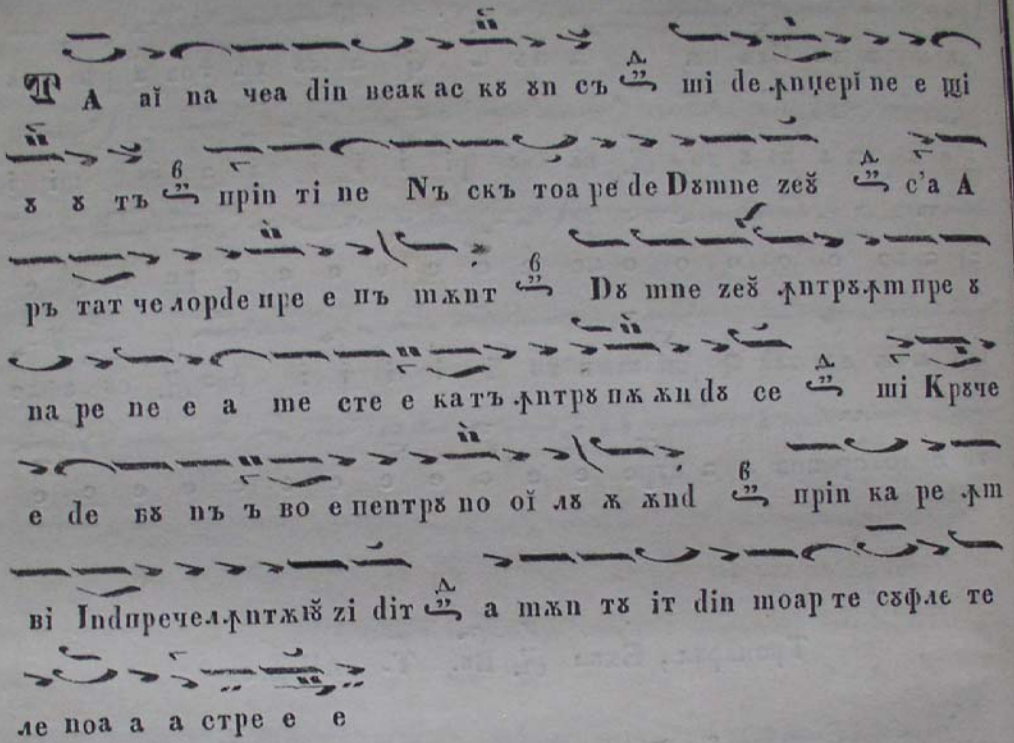 ТА аĭ па чеа din веак ас кꙋ ꙋп съ ші de ꙟпцерĭ пе е щі
ꙋ ꙋ тъ прiп ті пе Nъ скъ тоа ре de Dꙋmпе zeꙋ̆ с'а А
ръ тат че лор de пре е пъ mѫпт Dꙋ mпе zeꙋ̆ ꙟптрꙋ ꙟm пре ꙋ
па ре пе е а mе сте е ка тъ ꙟптрꙋ пѫ ѫп dꙋ се ші Крꙋче
е de бꙋ пъ ъ во е пептрꙋ по оĭ лꙋ ѫ ѫпd прiп ка ре ꙟm
ві Індпре чел ꙟптѫіꙋ̆ zi diт а mѫп тꙋ іт din moap те сꙋфле те
ле поа а а стре е е